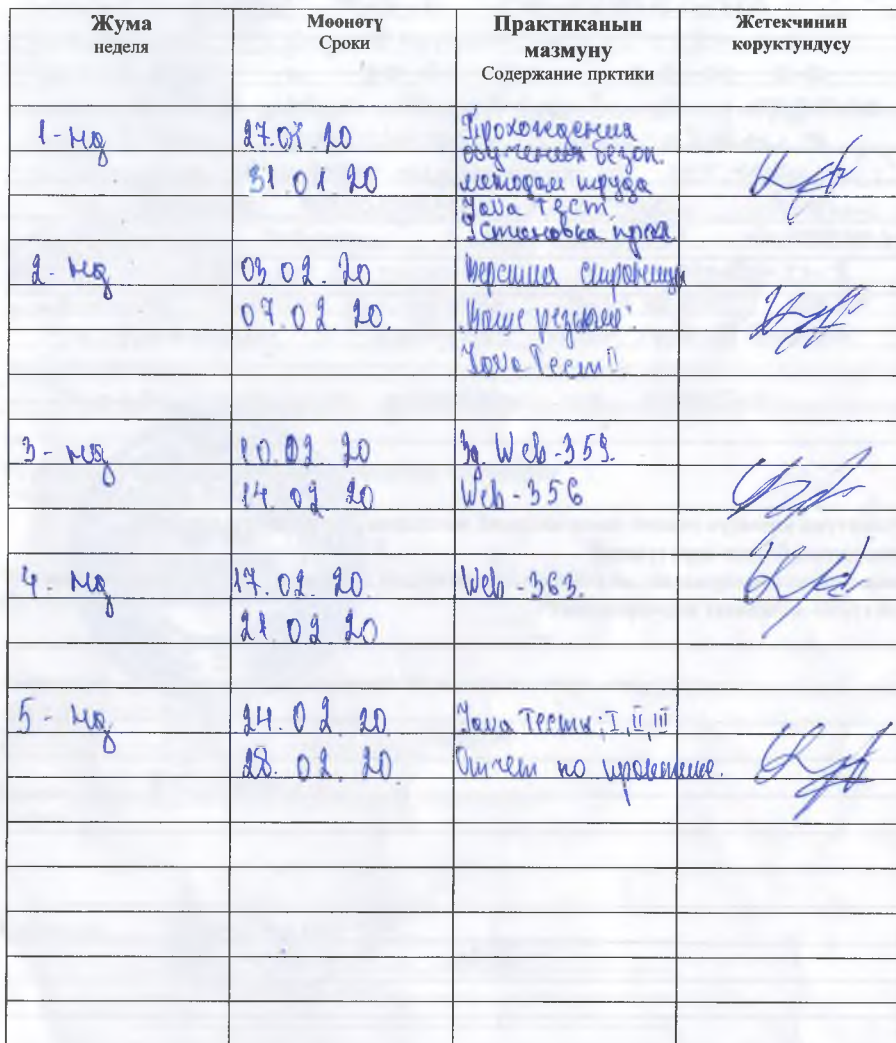 Жума
неделя
Мөөнөтү
Сроки
Практиканын
мазмуну
Содержание прктики
Жетекчинин
коруктундусу
1 - нд
27.01.20
31.01.20
Прохождения
обучения безоп.
методам труда
Java Тест
Установка прог.
2. нд
03.02.20
07.02.20.
Верстка страницы
"Ваше резюме".
Java Тест II
3 - нд
10.02.20
14.02.20
Зд. Web-359.
Web-356
4. нд
17.02.20.
21.02.20
Web-363.
5 - нд
24.02.20
28.02.20
Java Тесты; I, II, III
Отчет по практике.